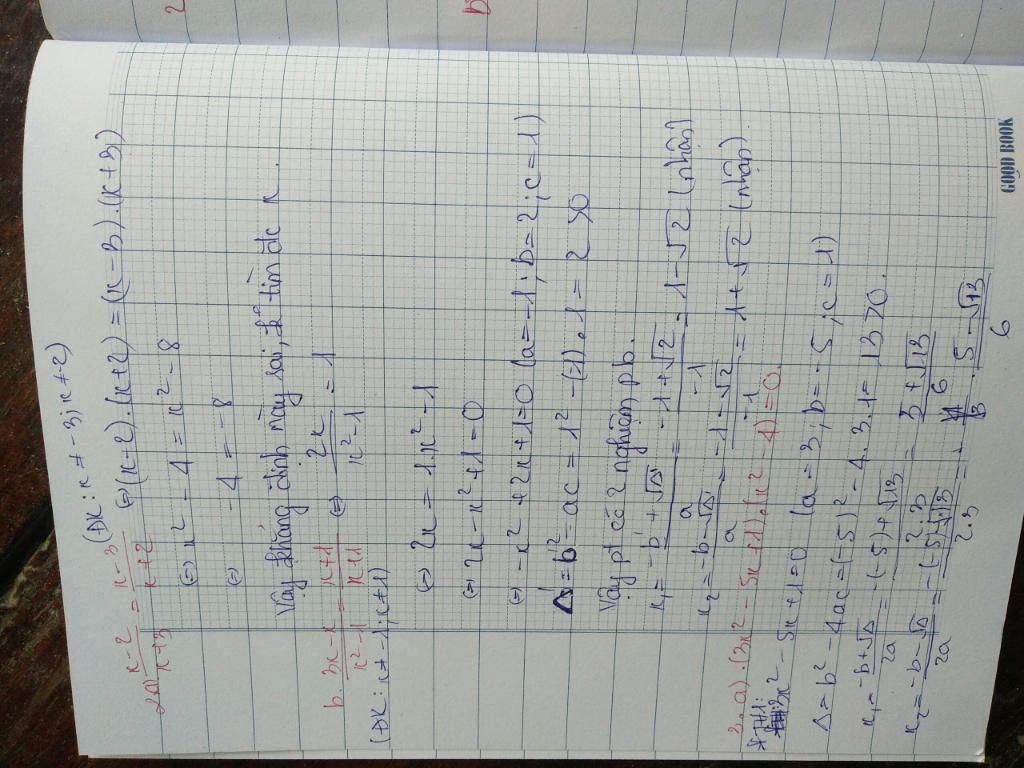 2a) x-2/x+3 = x-3/x+2 (ĐK: x ≠ -3; x ≠ -2)
(=) (x-2).(x+2) = (x-3).(x+3)
(=) x² - 4 = x² - 8
(=) -4 = -8
Vậy khẳng định này sai, k tìm đc x.
b. 3x-x/x²-1 = x+1/x+1 (=) 2x/x²-1 = 1
(ĐK: x ≠ -1; x ≠ 1)
(=) 2x = 1.x² - 1
(=) 2x - x² + 1 = 0
(=) -x² + 2x + 1 = 0 (a = -1; b = 2; c = 1)
Δ' = b'² - ac = 1² - (-1).1 = 2 > 0
Vậy pt có 2 nghiệm pb.
x₁ = -b' + √Δ'/a = -1 + √2/-1 = 1 - √2 (nhận)
x₂ = -b - √Δ'/a = -1 - √2/-1 = 1 + √2 (nhận).
3. a). (3x² - 5x + 1).(x² - 4) = 0.
* TH1:
3x² - 5x + 1 = 0 (a = 3; b = -5; c = 1)
Δ = b² - 4ac = (-5)² - 4.3.1 = 13 > 0.
x₁ = -b + √Δ/2a = -(-5) + √13/2.3 = 5 + √13/6
x₂ = -b - √Δ/2a = -(-5) - √13/2.3 = 5 - √13/6
GOOD BOOK